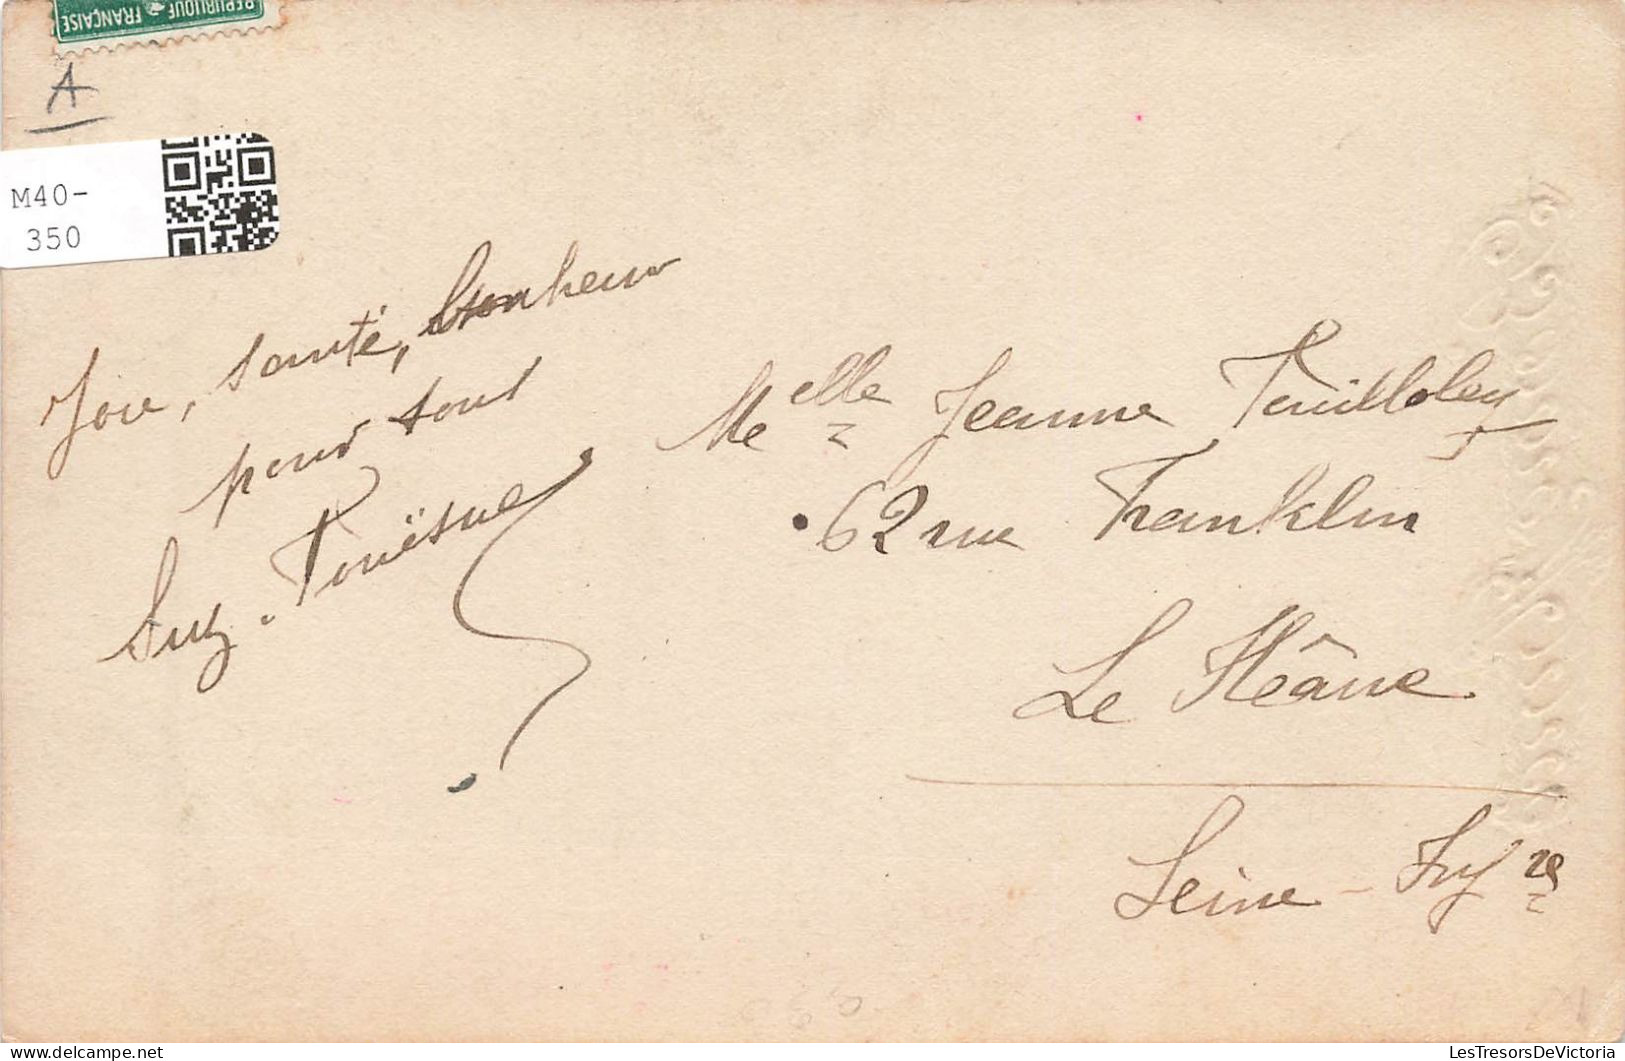 RÉPUBLIQUE FRANÇAISE
A
M40-
350
Joie, santé, bonheur
pour tous
Suz. Pouësnel
Melle Jeanne
62 rue Franklin
Le Hâvre
Seine-Infre
LesTresorsDeVictoria